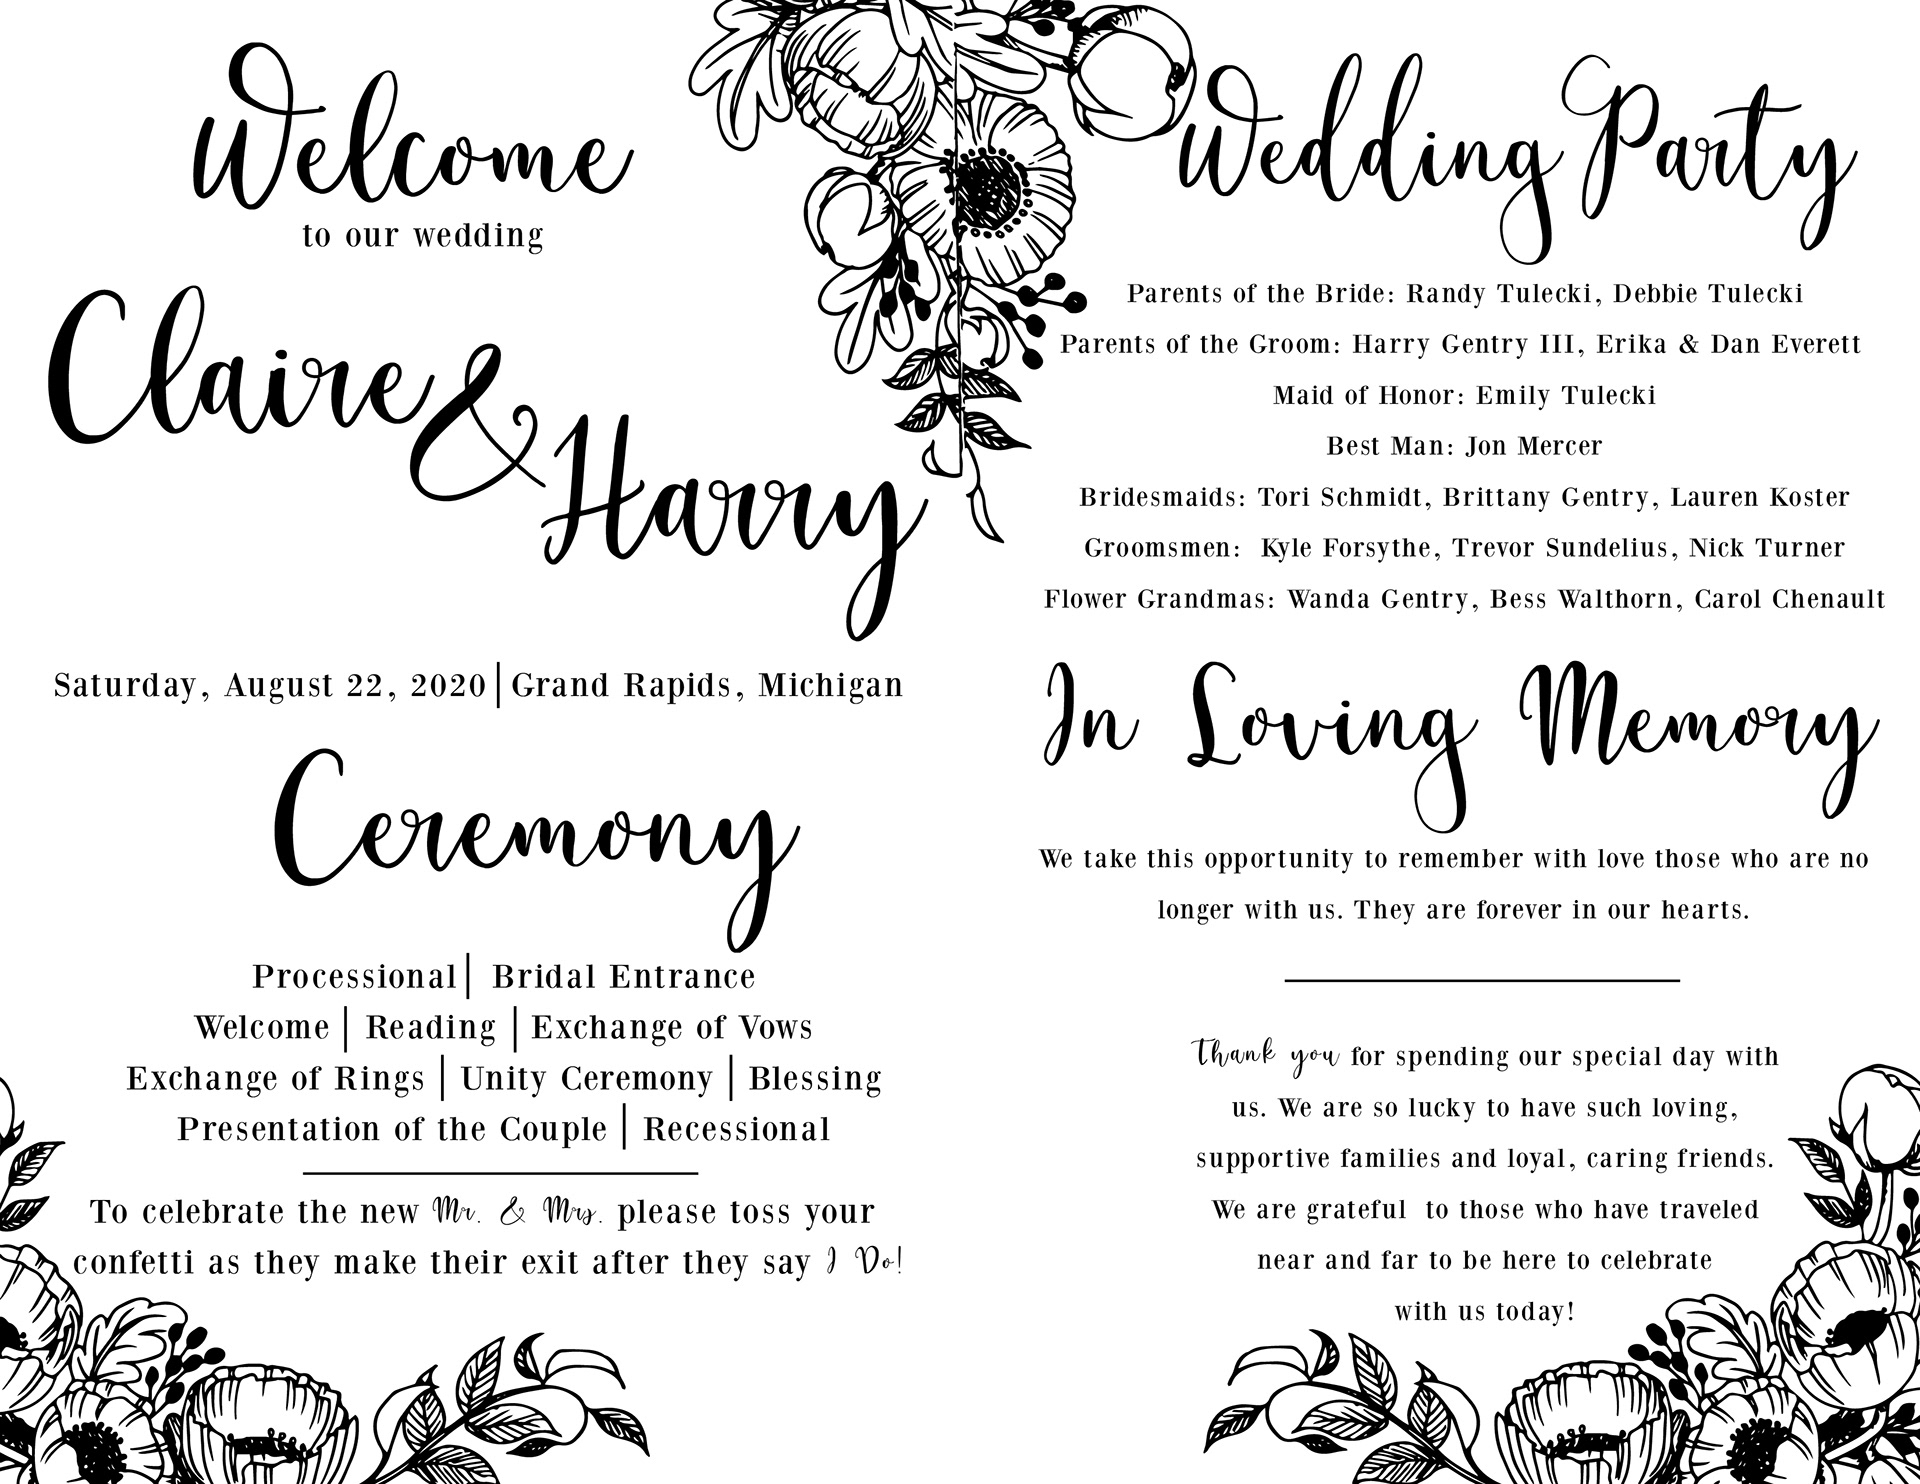 Welcome
to our wedding
Claire & Harry
Saturday, August 22, 2020|Grand Rapids, Michigan
Ceremony
Processional| Bridal Entrance
Welcome | Reading | Exchange of Vows
Exchange of Rings | Unity Ceremony | Blessing
Presentation of the Couple | Recessional
To celebrate the new Mr. & Mrs. please toss your
confetti as they make their exit after they say I Do!
Wedding Party
Parents of the Bride: Randy Tulecki, Debbie Tulecki
Parents of the Groom: Harry Gentry III, Erika & Dan Everett
Maid of Honor: Emily Tulecki
Best Man: Jon Mercer
Bridesmaids: Tori Schmidt, Brittany Gentry, Lauren Koster
Groomsmen: Kyle Forsythe, Trevor Sundelius, Nick Turner
Flower Grandmas: Wanda Gentry, Bess Walthorn, Carol Chenault
In Loving Memory
We take this opportunity to remember with love those who are no
longer with us. They are forever in our hearts.
Thank you for spending our special day with
us. We are so lucky to have such loving,
supportive families and loyal, caring friends.
We are grateful to those who have traveled
near and far to be here to celebrate
with us today!